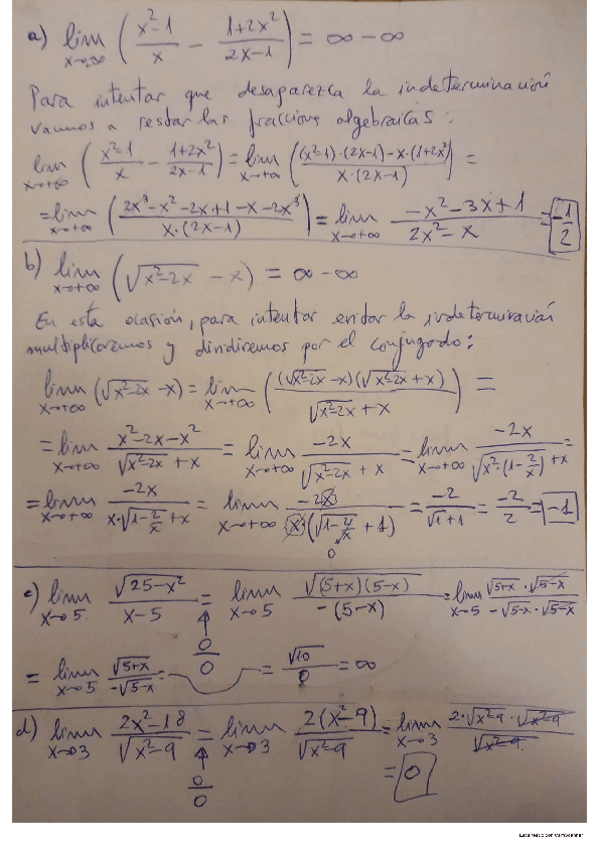 a) lim x→∞ ( (x²-1)/x - (1+2x²)/(2x-1) ) = ∞ - ∞
Para intentar que desaparezca la indeterminación
vamos a restar las fracciones algebraicas:
lim x→+∞ ( (x²-1)/x - (1+2x²)/(2x-1) ) = lim x→+∞ ( ((x²-1)·(2x-1) - x·(1+2x²))/(x·(2x-1)) ) =
= lim x→+∞ ( (2x³-x²-2x+1-x-2x³)/(x·(2x-1)) ) = lim x→+∞ (-x²-3x+1)/(2x²-x) = -1/2
b) lim x→+∞ (√(x²-2x) - x) = ∞ - ∞
En esta ocasión, para intentar evitar la indeterminación
multiplicaremos y dividiremos por el conjugado:
lim x→+∞ (√(x²-2x) - x) = lim x→+∞ ( ((√(x²-2x) - x)(√(x²-2x) + x))/(√(x²-2x) + x) ) =
= lim x→+∞ (x²-2x-x²)/(√(x²-2x) + x) = lim x→+∞ (-2x)/(√(x²-2x) + x) = lim x→+∞ (-2x)/(√(x²·(1-2/x)) + x) =
= lim x→+∞ (-2x)/(x·√(1-2/x) + x) = lim x→+∞ (-2x)/(x(√(1-2/x) + 1)) = -2/(√1+1) = -2/2 = -1
0
c) lim x→5 √(25-x²)/(x-5) = lim x→5 √((5+x)(5-x))/(-(5-x)) = lim x→5 (√(5+x)·√(5-x))/(-√(5-x)·√(5-x))
0/0
= lim x→5 √(5+x)/(-√(5-x)) = √10/0 = ∞
d) lim x→3 (2x²-18)/√(x²-9) = lim x→3 2(x²-9)/√(x²-9) = lim x→3 (2·√(x²-9)·√(x²-9))/√(x²-9)
0/0
= 0